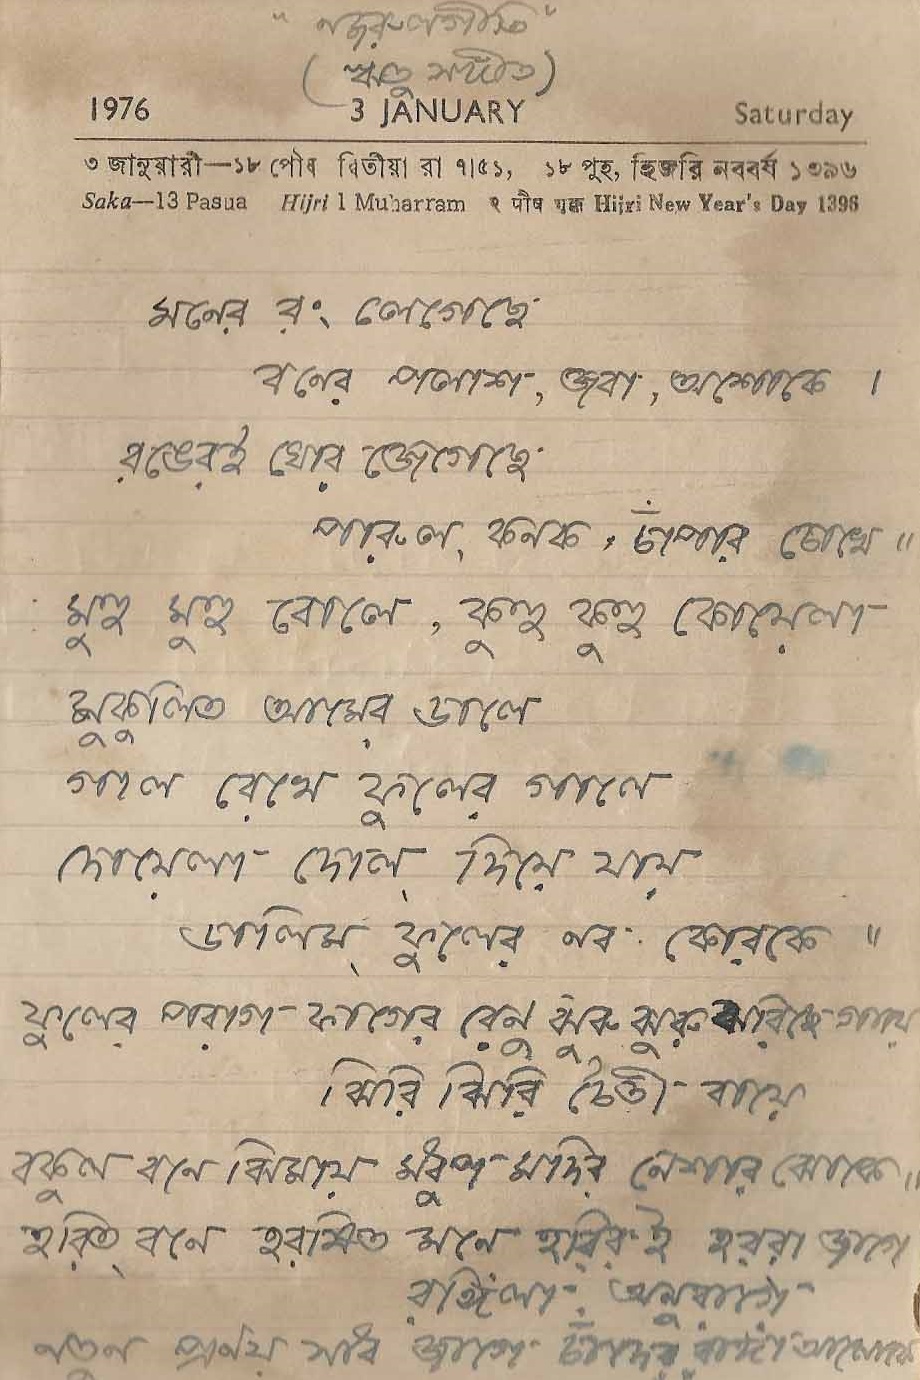 "নজরুলগীতি"
(ঋতু সঙ্গীত)
1976 3 JANUARY Saturday
৩ জানুয়ারী—১৮ পৌষ দ্বিতীয়া রা ৭।৫১, ১৮ পুহ, হিজরি নববর্ষ ১৩৯৬
Saka—13 Pausa Hijri 1 Muharram २ पौष शुक्ल Hijri New Year's Day 1396
মনের রং লেগেছে
বনের পলাশ, জবা, অশোকে ।
রঙেরই ঘোর জেগেছে
পারুল, কনক, চাঁপার চোখে ॥
মুহু মুহু বোলে, কুহু কুহু কোয়েলা
মুকুলিত আমের ডালে
গাল রেখে ফুলের গালে
দোয়েলা দোল দিয়ে যায়
ডালিম ফুলের নব কোরকে ॥
ফুলের পরাগ ফাগের রেনু ঝুরু ঝুরু ঝরিছে গায়ে
ঝিরি ঝিরি চৈতী বায়ে
বকুল বনে ঝিমায় মধুপ মদির নেশার ঝোঁকে ॥
হরিত বনে হরষিত মনে হরির ই হররা জাগে
রঙ্গিলা অনুরাগে
নতুন প্রণয় সাধ জাগে চাঁদের রাঙ্গা আলোকে